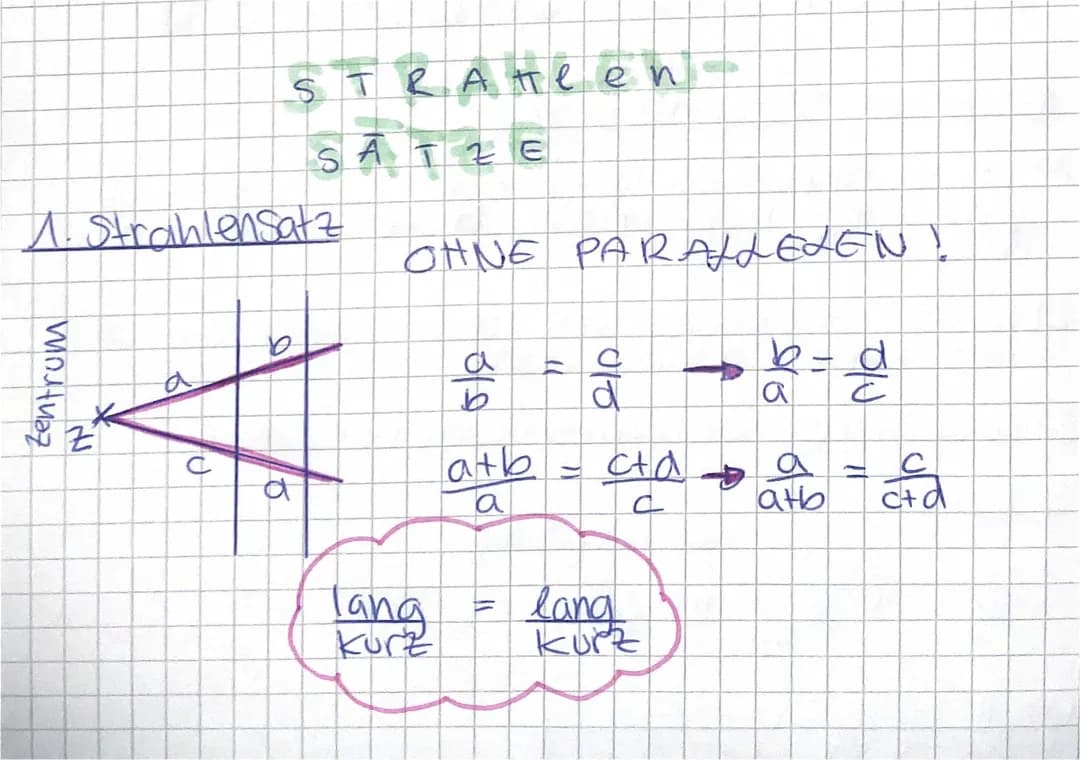 STRAHlen-
SÄTZE
1. Strahlensatz
OHNE PARALLELEN!
Zentrum
Z
a
b
c
d
a/b = c/d → b/a = d/c
a+b/a = c+d/c → a/a+b = c/c+d
lang/kurz = lang/kurz